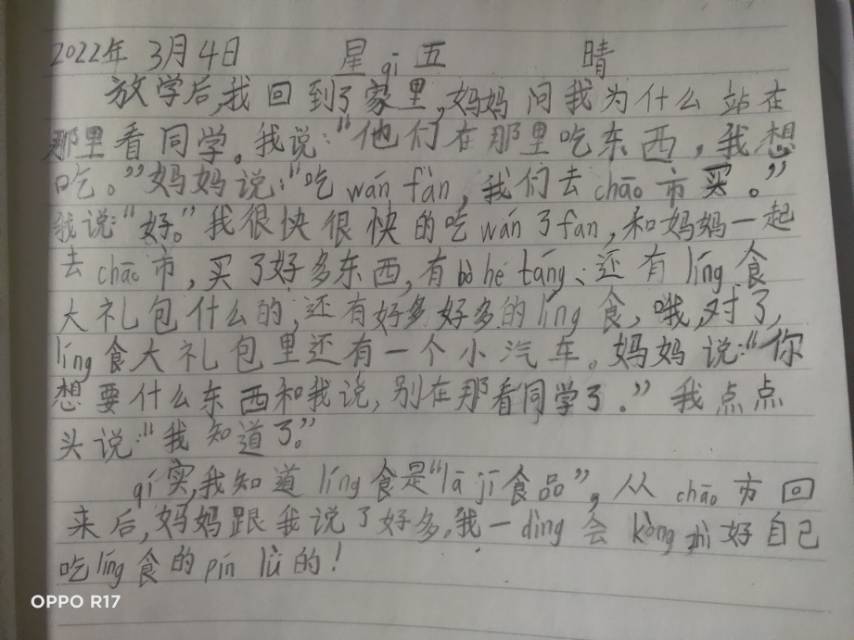 2022年 3月4日 星qī五 晴
放学后,我回到了家里,妈妈问我为什么站在
那里看同学。我说:"他们在那里吃东西,我想
吃。"妈妈说:"吃wán fàn,我们去chāo市买。"
我说:"好。"我很快很快的吃wán了fan,和妈妈一起
去chāo市,买了好多东西,有bò hé táng、还有líng食
大礼包什么的,还有好多好多的líng食,哦,对了,
líng食大礼包里还有一个小汽车。妈妈说:"你
想要什么东西和我说,别在那看同学了。"我点点
头说:"我知道了。"
qí实,我知道líng食是"lā jī食品",从chāo市回
来后,妈妈跟我说了好多,我一dìng会kòng zhì好自己
吃líng食的pín lǜ的!
OPPO R17